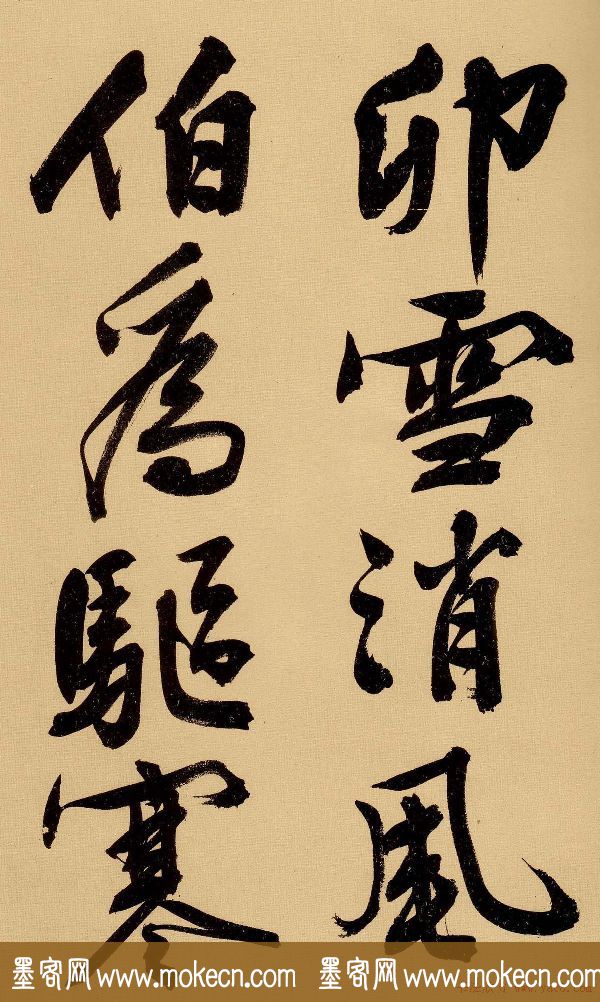 卯雪消风
伯为驱寒
墨客网 www.mokecn.com 墨客网 www.mokecn.com